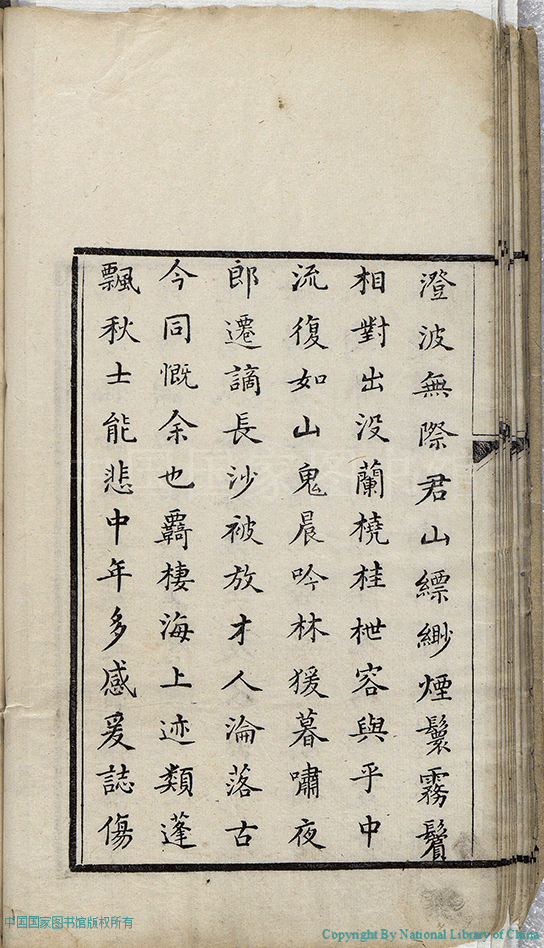 澄波無際君山縹緲煙鬟霧鬢
相對出没蘭橈桂枻容與乎中
流復如山鬼晨吟林猨暮嘯夜
郎遷謫長沙被放才人淪落古
今同慨余也羇棲海上迹類蓬
飄秋士能悲中年多感爰誌傷
中国国家图书馆版权所有
Copyright By National Library of China